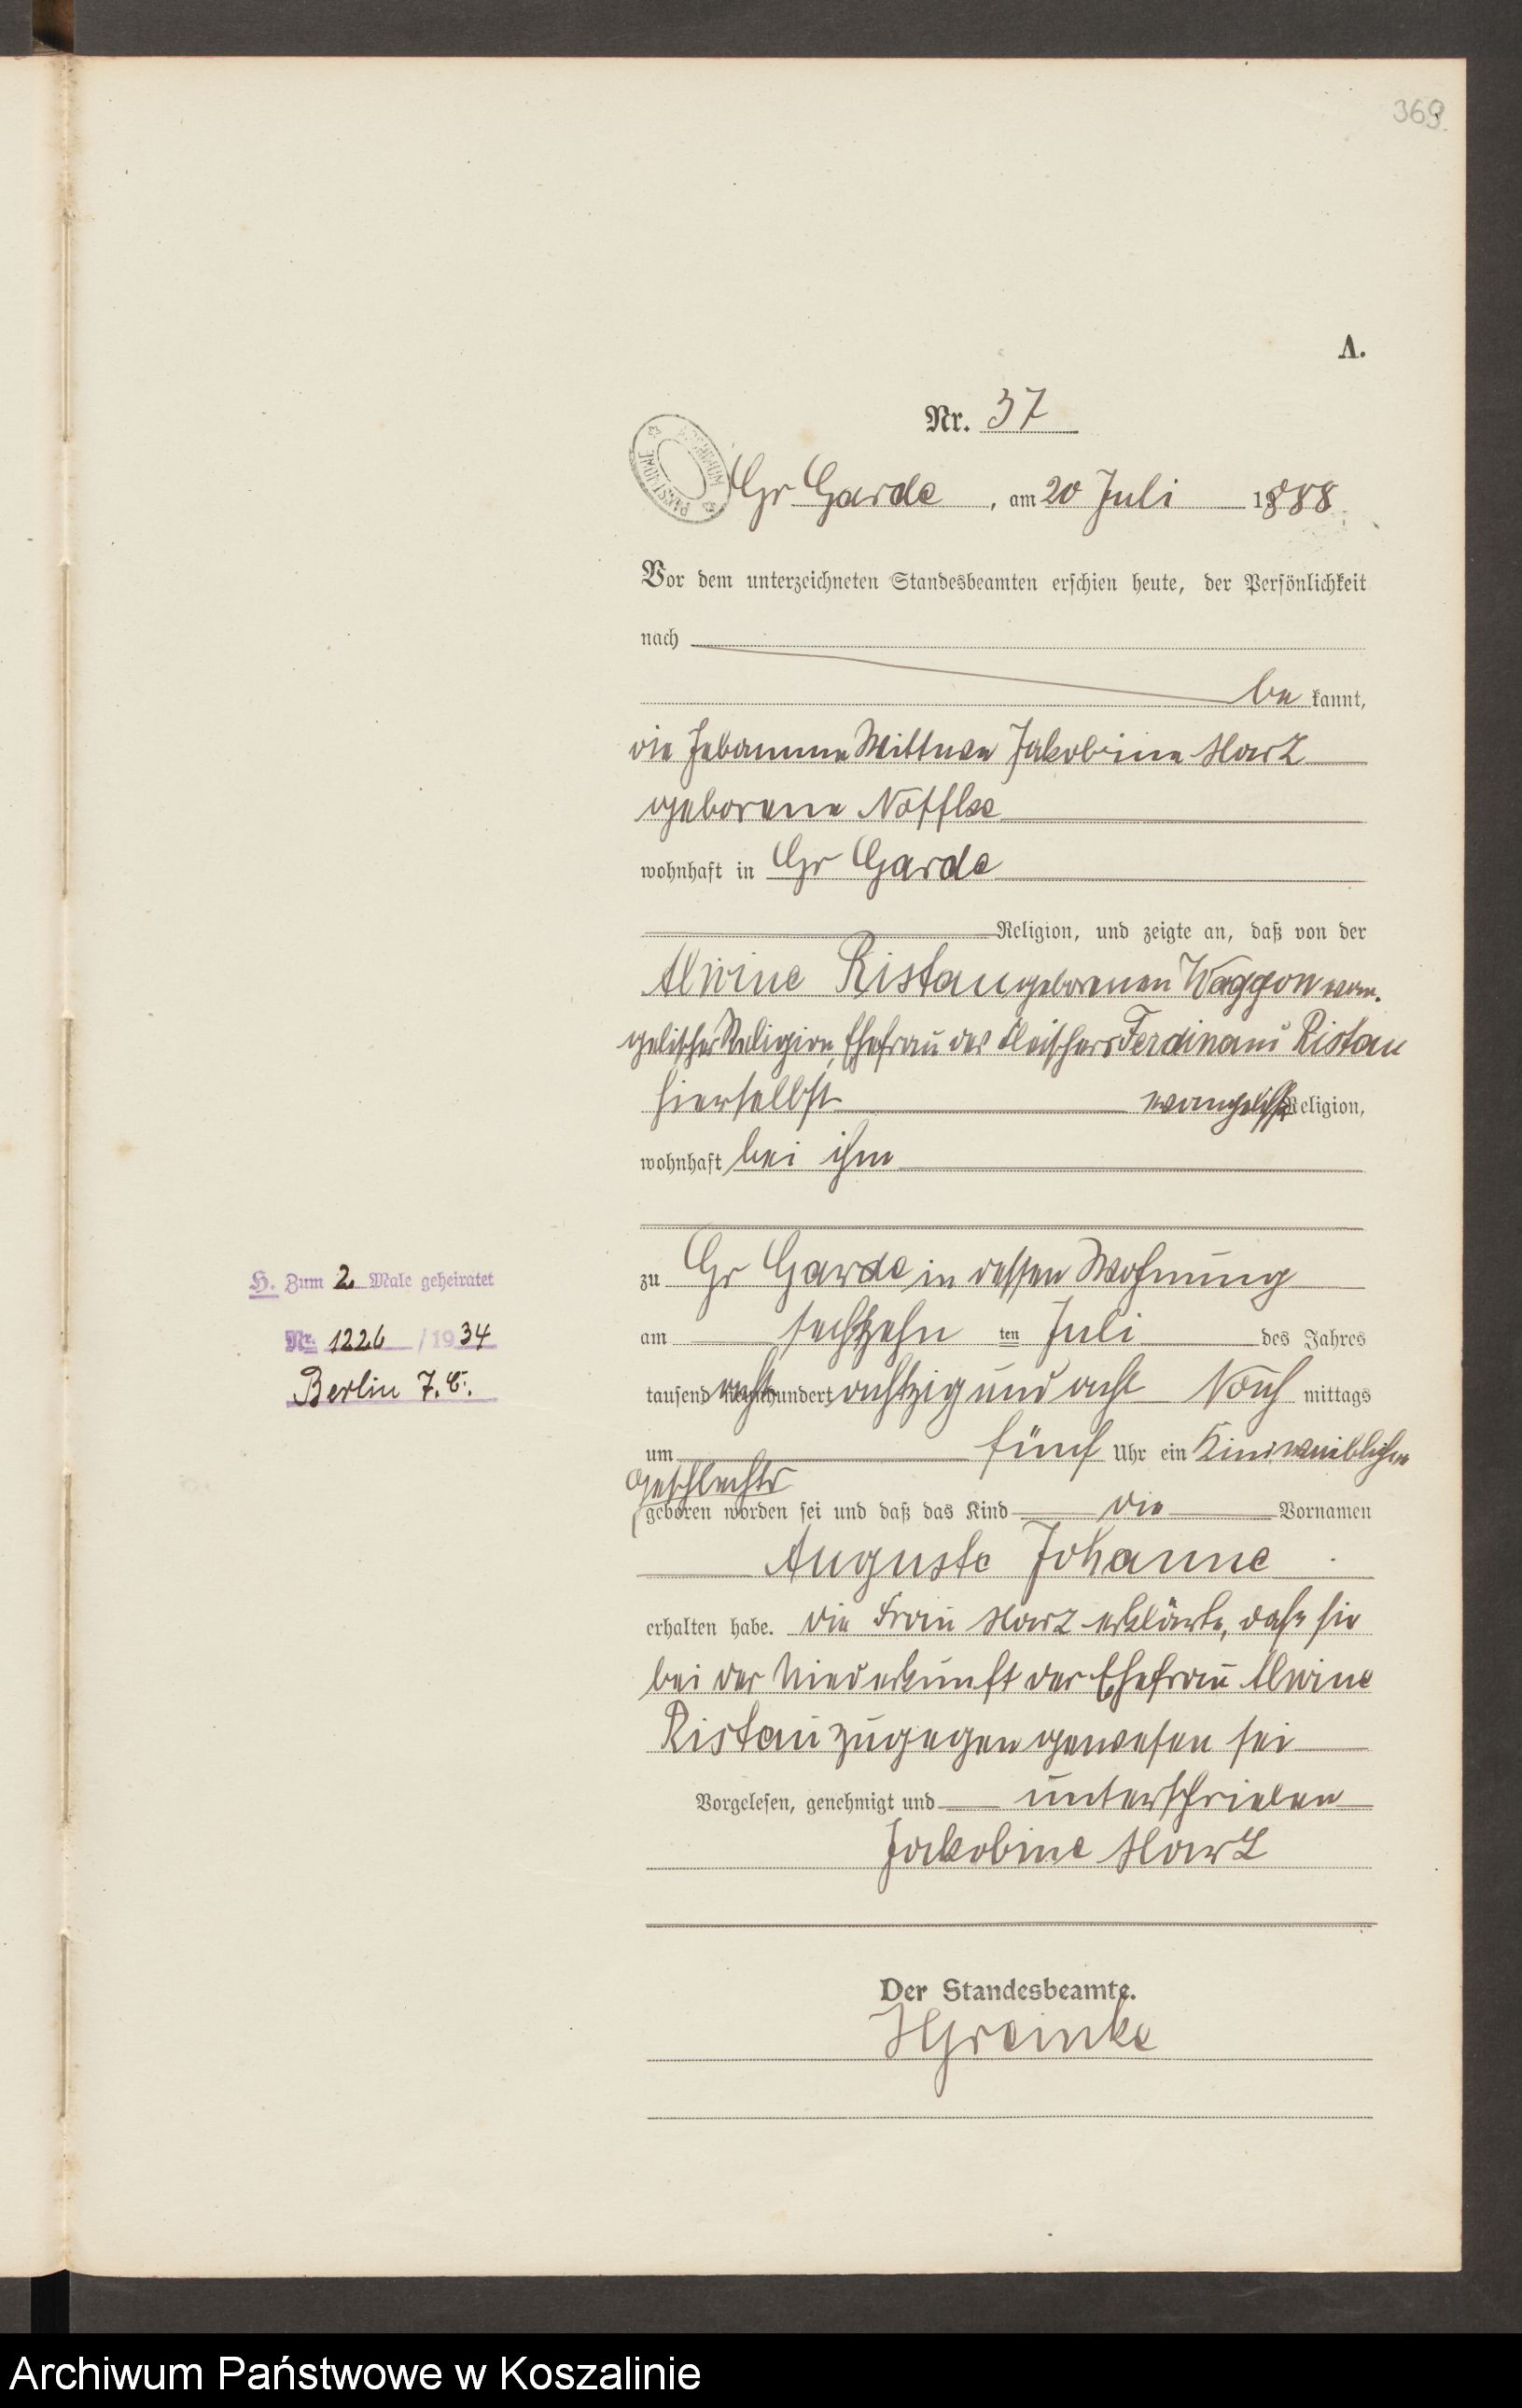 369.
A.
Nr. 37
Gr Garde, am 20 Juli 1888
Vor dem unterzeichneten Standesbeamten erschien heute, der Persönlichkeit
nach
be kannt,
die Hebamme Wittwe Jakobine Harz
geborene Noffke
wohnhaft in Gr Garde
Religion, und zeigte an, daß von der
Alwine Ristau geborenen Waggon evan-
gelischer Religion, Ehefrau des Fleischers Ferdinand Ristau
hierselbst evangelisch Religion,
wohnhaft bei ihm
zu Gr Garde in dessen Wohnung
am sechzehn ten Juli des Jahres
tausend acht hundert achtzig und acht Nach mittags
um fünf Uhr ein Kind weiblichen
Geschlechts
geboren worden sei und daß das Kind die Vornamen
Auguste Johanne
erhalten habe. Die Frau Harz erklärte, daß sie
bei der Niederkunft der Ehefrau Alwine
Ristau zugegen gewesen sei
Vorgelesen, genehmigt und unterschrieben
Jakobine Harz
Der Standesbeamte.
HGreinke
H. Zum 2. Male geheiratet
Nr. 1226 / 1934
Berlin 7.
ARCHIWUM PAŃSTWOWE
Archiwum Państwowe w Koszalinie